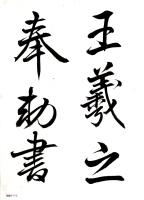 王羲之
奉勅書